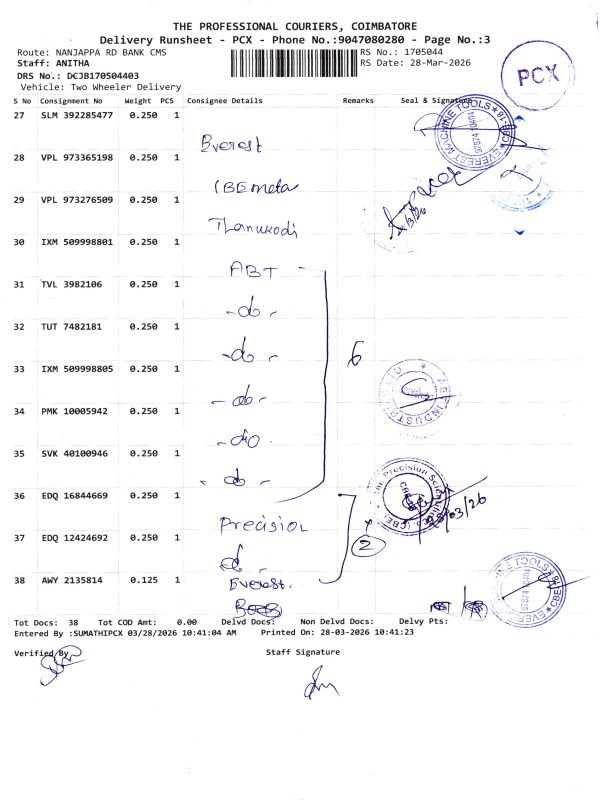 THE PROFESSIONAL COURIERS, COIMBATORE
Delivery Runsheet - PCX - Phone No.:9047080280 - Page No.:3
Route: NANJAPPA RD BANK CMS
RS No.: 1705044
Staff: ANITHA
RS Date: 28-Mar-2026
DRS No.: DCJB170504403
Vehicle: Two Wheeler Delivery
PCX
S No Consignment No Weight PCS Consignee Details Remarks Seal & Signature
27 SLM 392285477 0.250 1
Everest
EVEREST MACHINE TOOLS
97874 10604
28 VPL 973365198 0.250 1
CBE meta
29 VPL 973276509 0.250 1
Thanukodi
30 IXM 509998801 0.250 1
ABT -
31 TVL 3982106 0.250 1
- do -
32 TUT 7482181 0.250 1
- do -
6
33 IXM 509998805 0.250 1
- do -
34 PMK 10005942 0.250 1
- do -
35 SVK 40100946 0.250 1
- do -
36 EDQ 16844669 0.250 1
Precision
The Precision Scientific
CBE
28/03/26
2
37 EDQ 12424692 0.250 1
do -
38 AWY 2135814 0.125 1
Everest
97874 10604
Tot Docs: 38 Tot COD Amt: 0.00 Delvd Docs: Non Delvd Docs: Delvy Pts:
Entered By :SUMATHIPCX 03/28/2026 10:41:04 AM Printed On: 28-03-2026 10:41:23
Verified By
Staff Signature